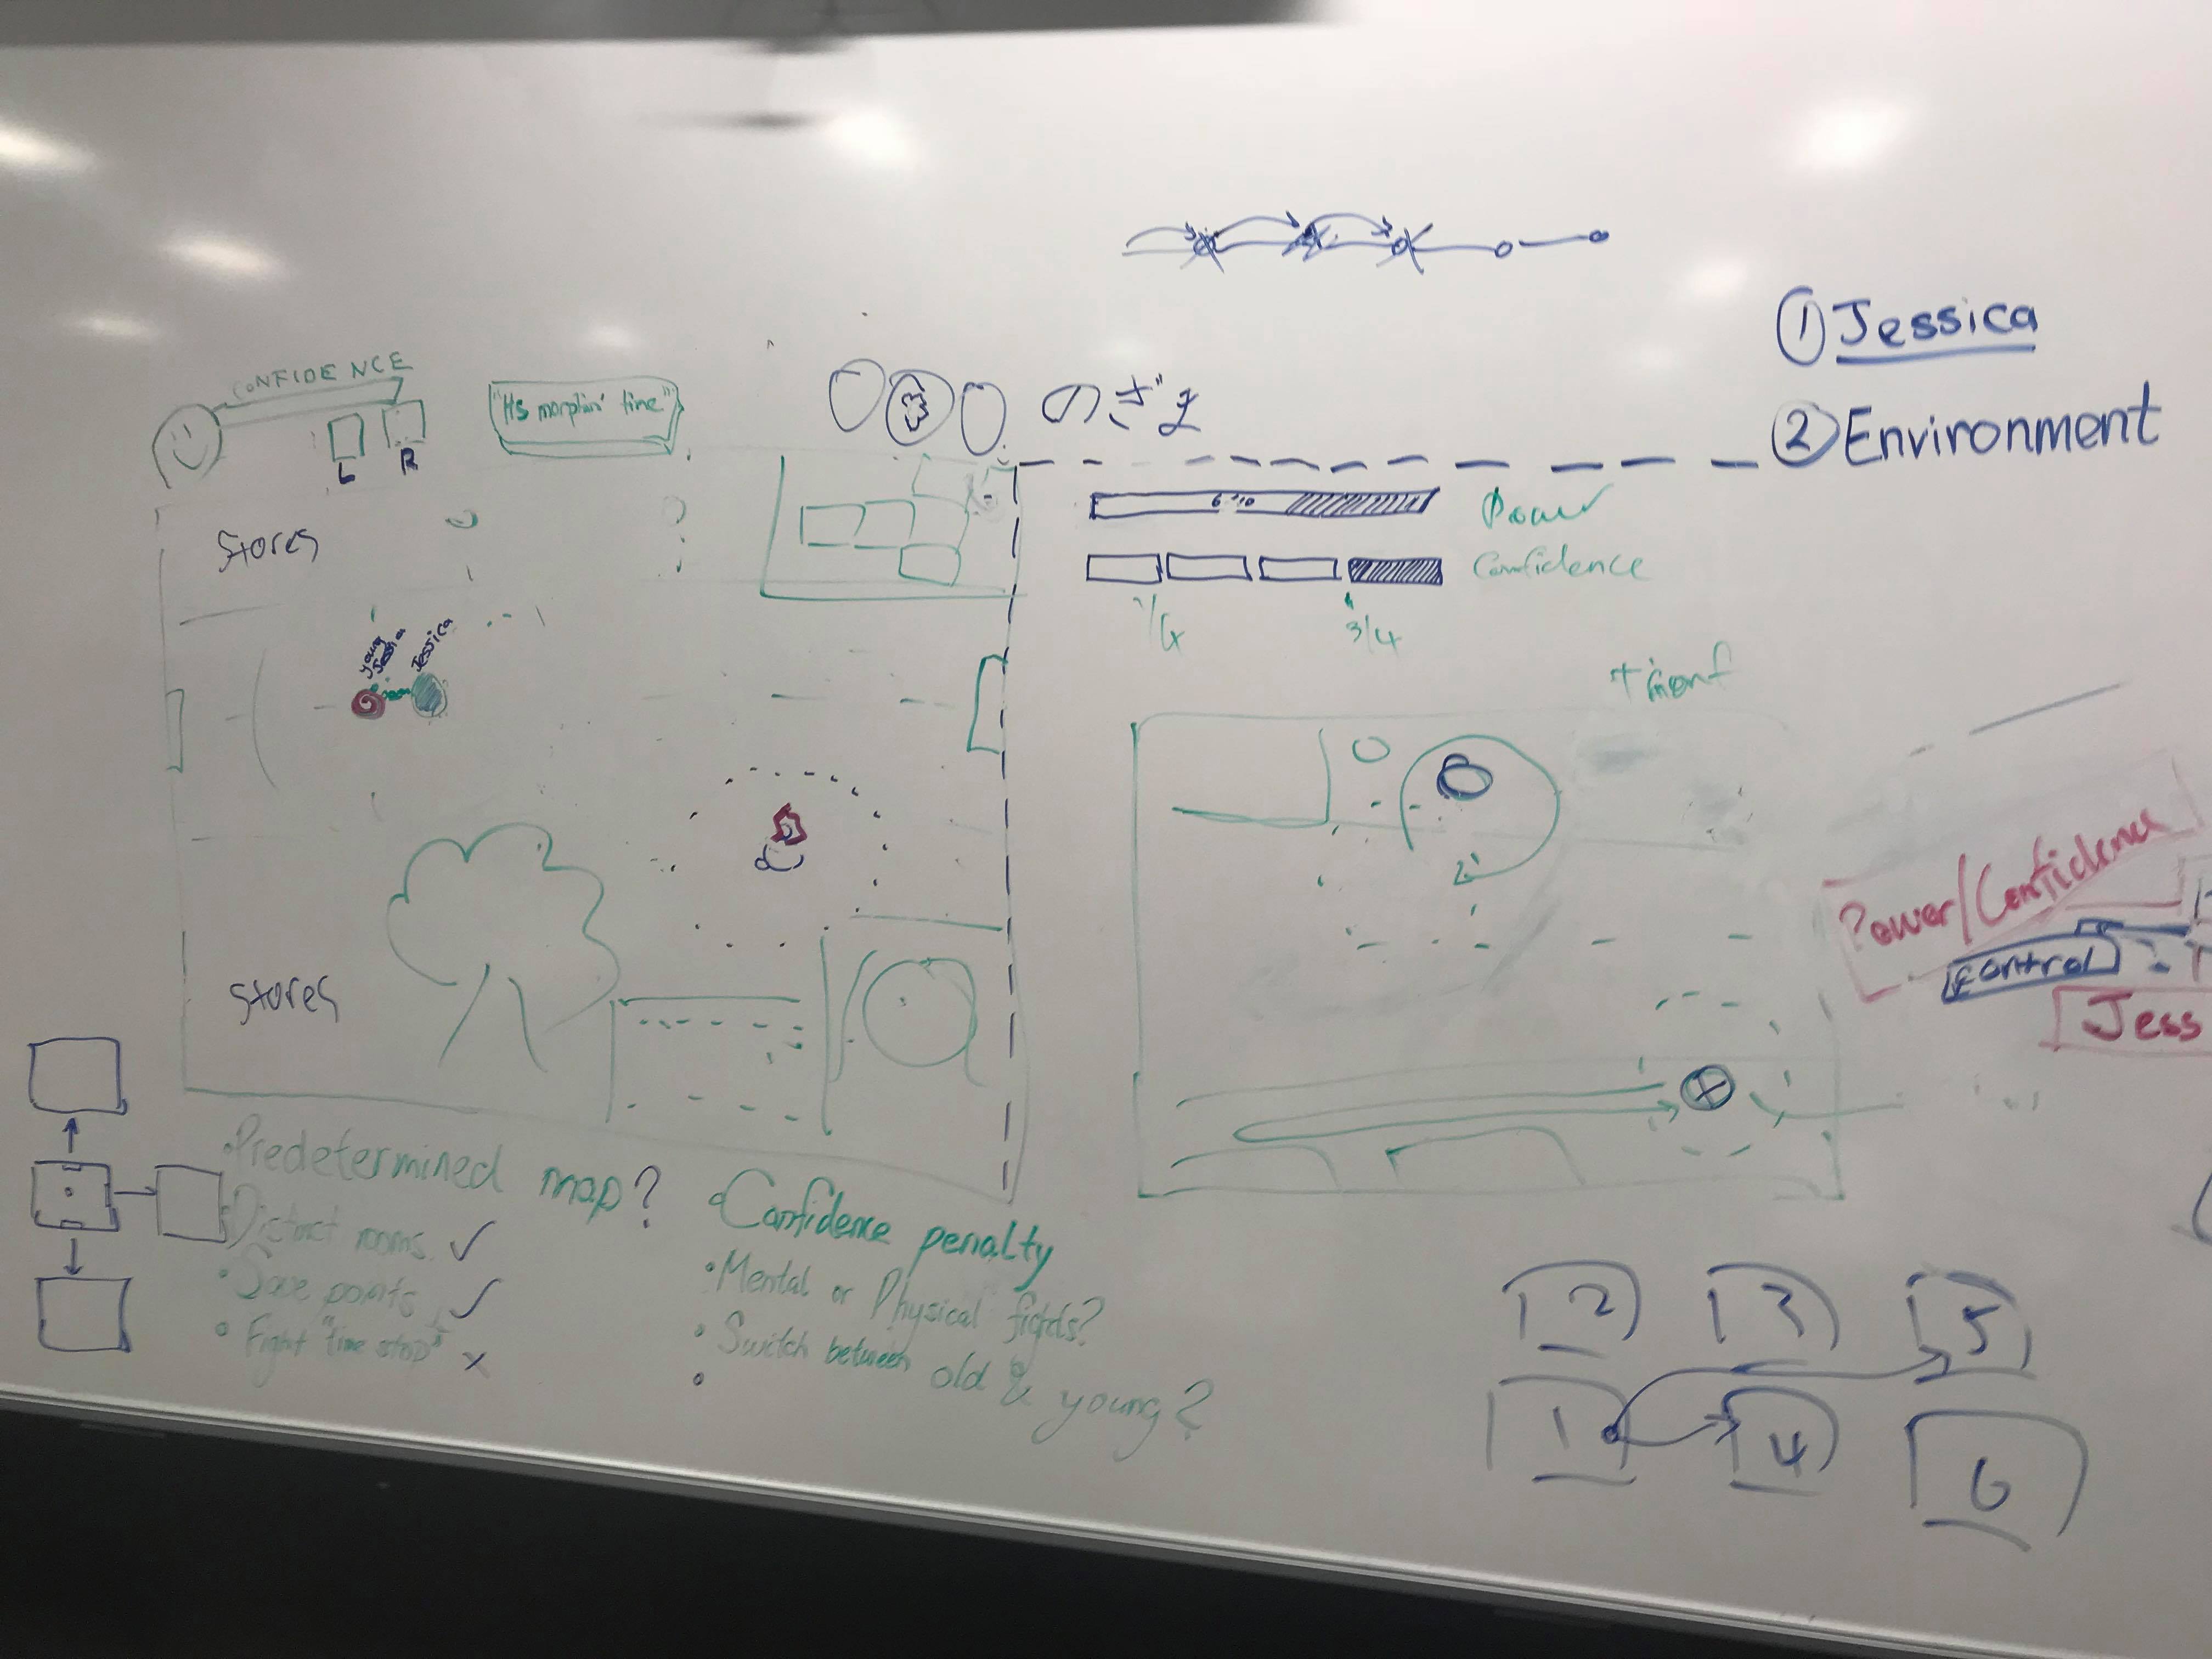 ① Jessica
② Environment
CONFIDENCE
L R
"Its morphin' time"
のざま
Stores
6 10
Power
Confidence
1/4
3/4
young
Jessica
Jessica
Stores
Power/Confidence
control
Jess
• Predetermined map?
Distinct rooms ✓
• Save points ✓
• Fight "time stop" x
• Confidence penalty
• Mental or Physical fights?
• Switch between old & young?
•
2 3 5
1 4 6